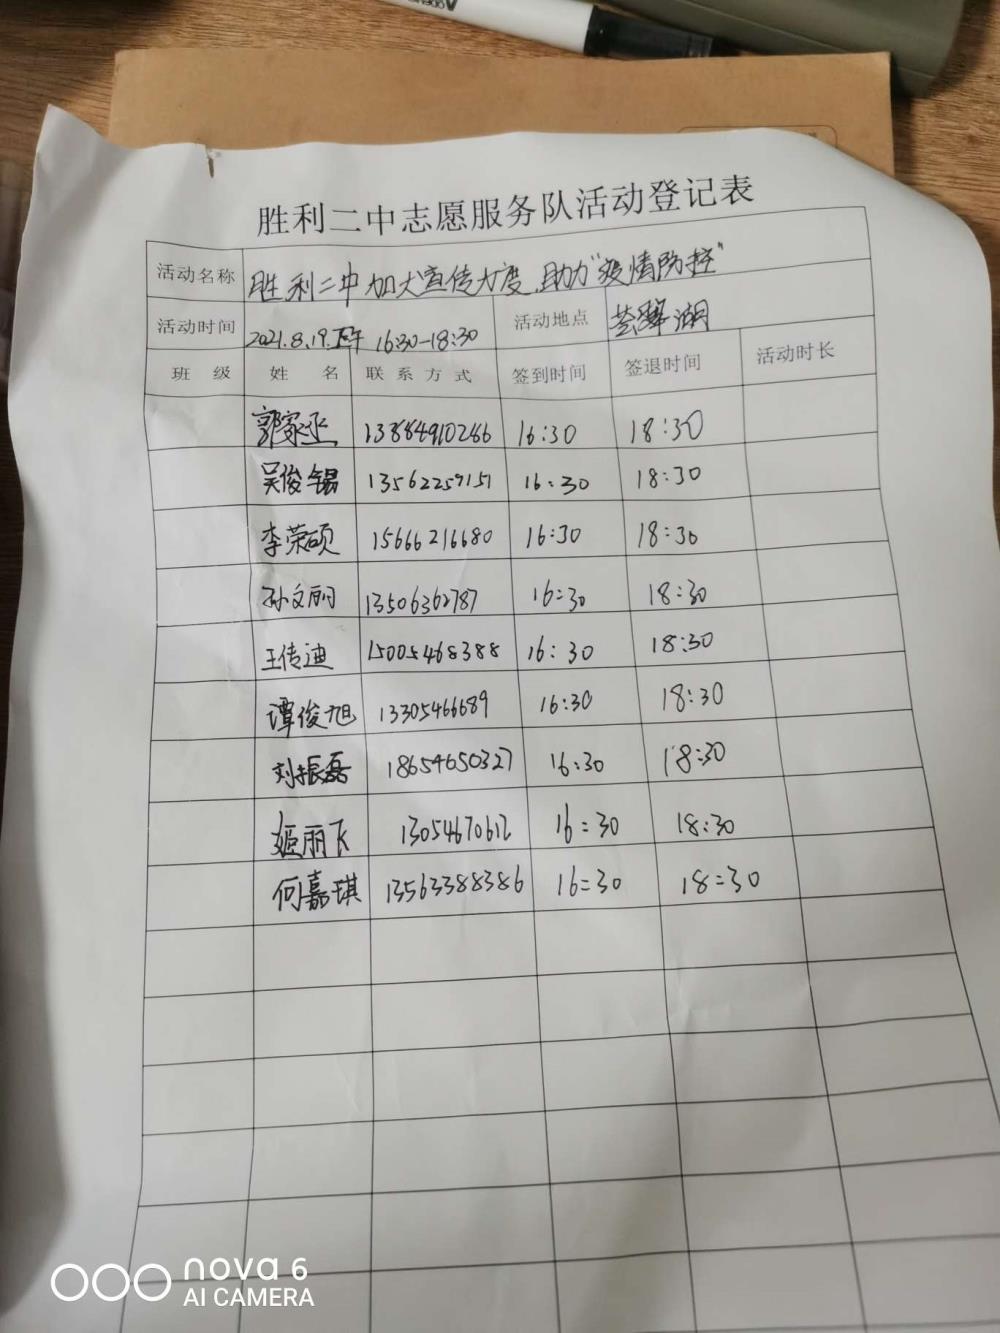 胜利二中志愿服务队活动登记表
活动名称 胜利二中加大宣传力度,助力"疫情防控"
活动时间 2021.8.19.下午 16:30-18:30 活动地点 荟翠湖
班 级 姓 名 联系方式 签到时间 签退时间 活动时长
郭家丞 13884910286 16:30 18:30
吴俊锡 13562259151 16:30 18:30
李荣硕 15666216680 16:30 18:30
孙文丽 13506362787 16:30 18:30
王传迪 15005468388 16:30 18:30
谭俊旭 13305466689 16:30 18:30
刘振磊 18654650327 16:30 18:30
姬丽飞 13054670612 16:30 18:30
何嘉琪 13563388386 16:30 18:30
nova 6
AI CAMERA